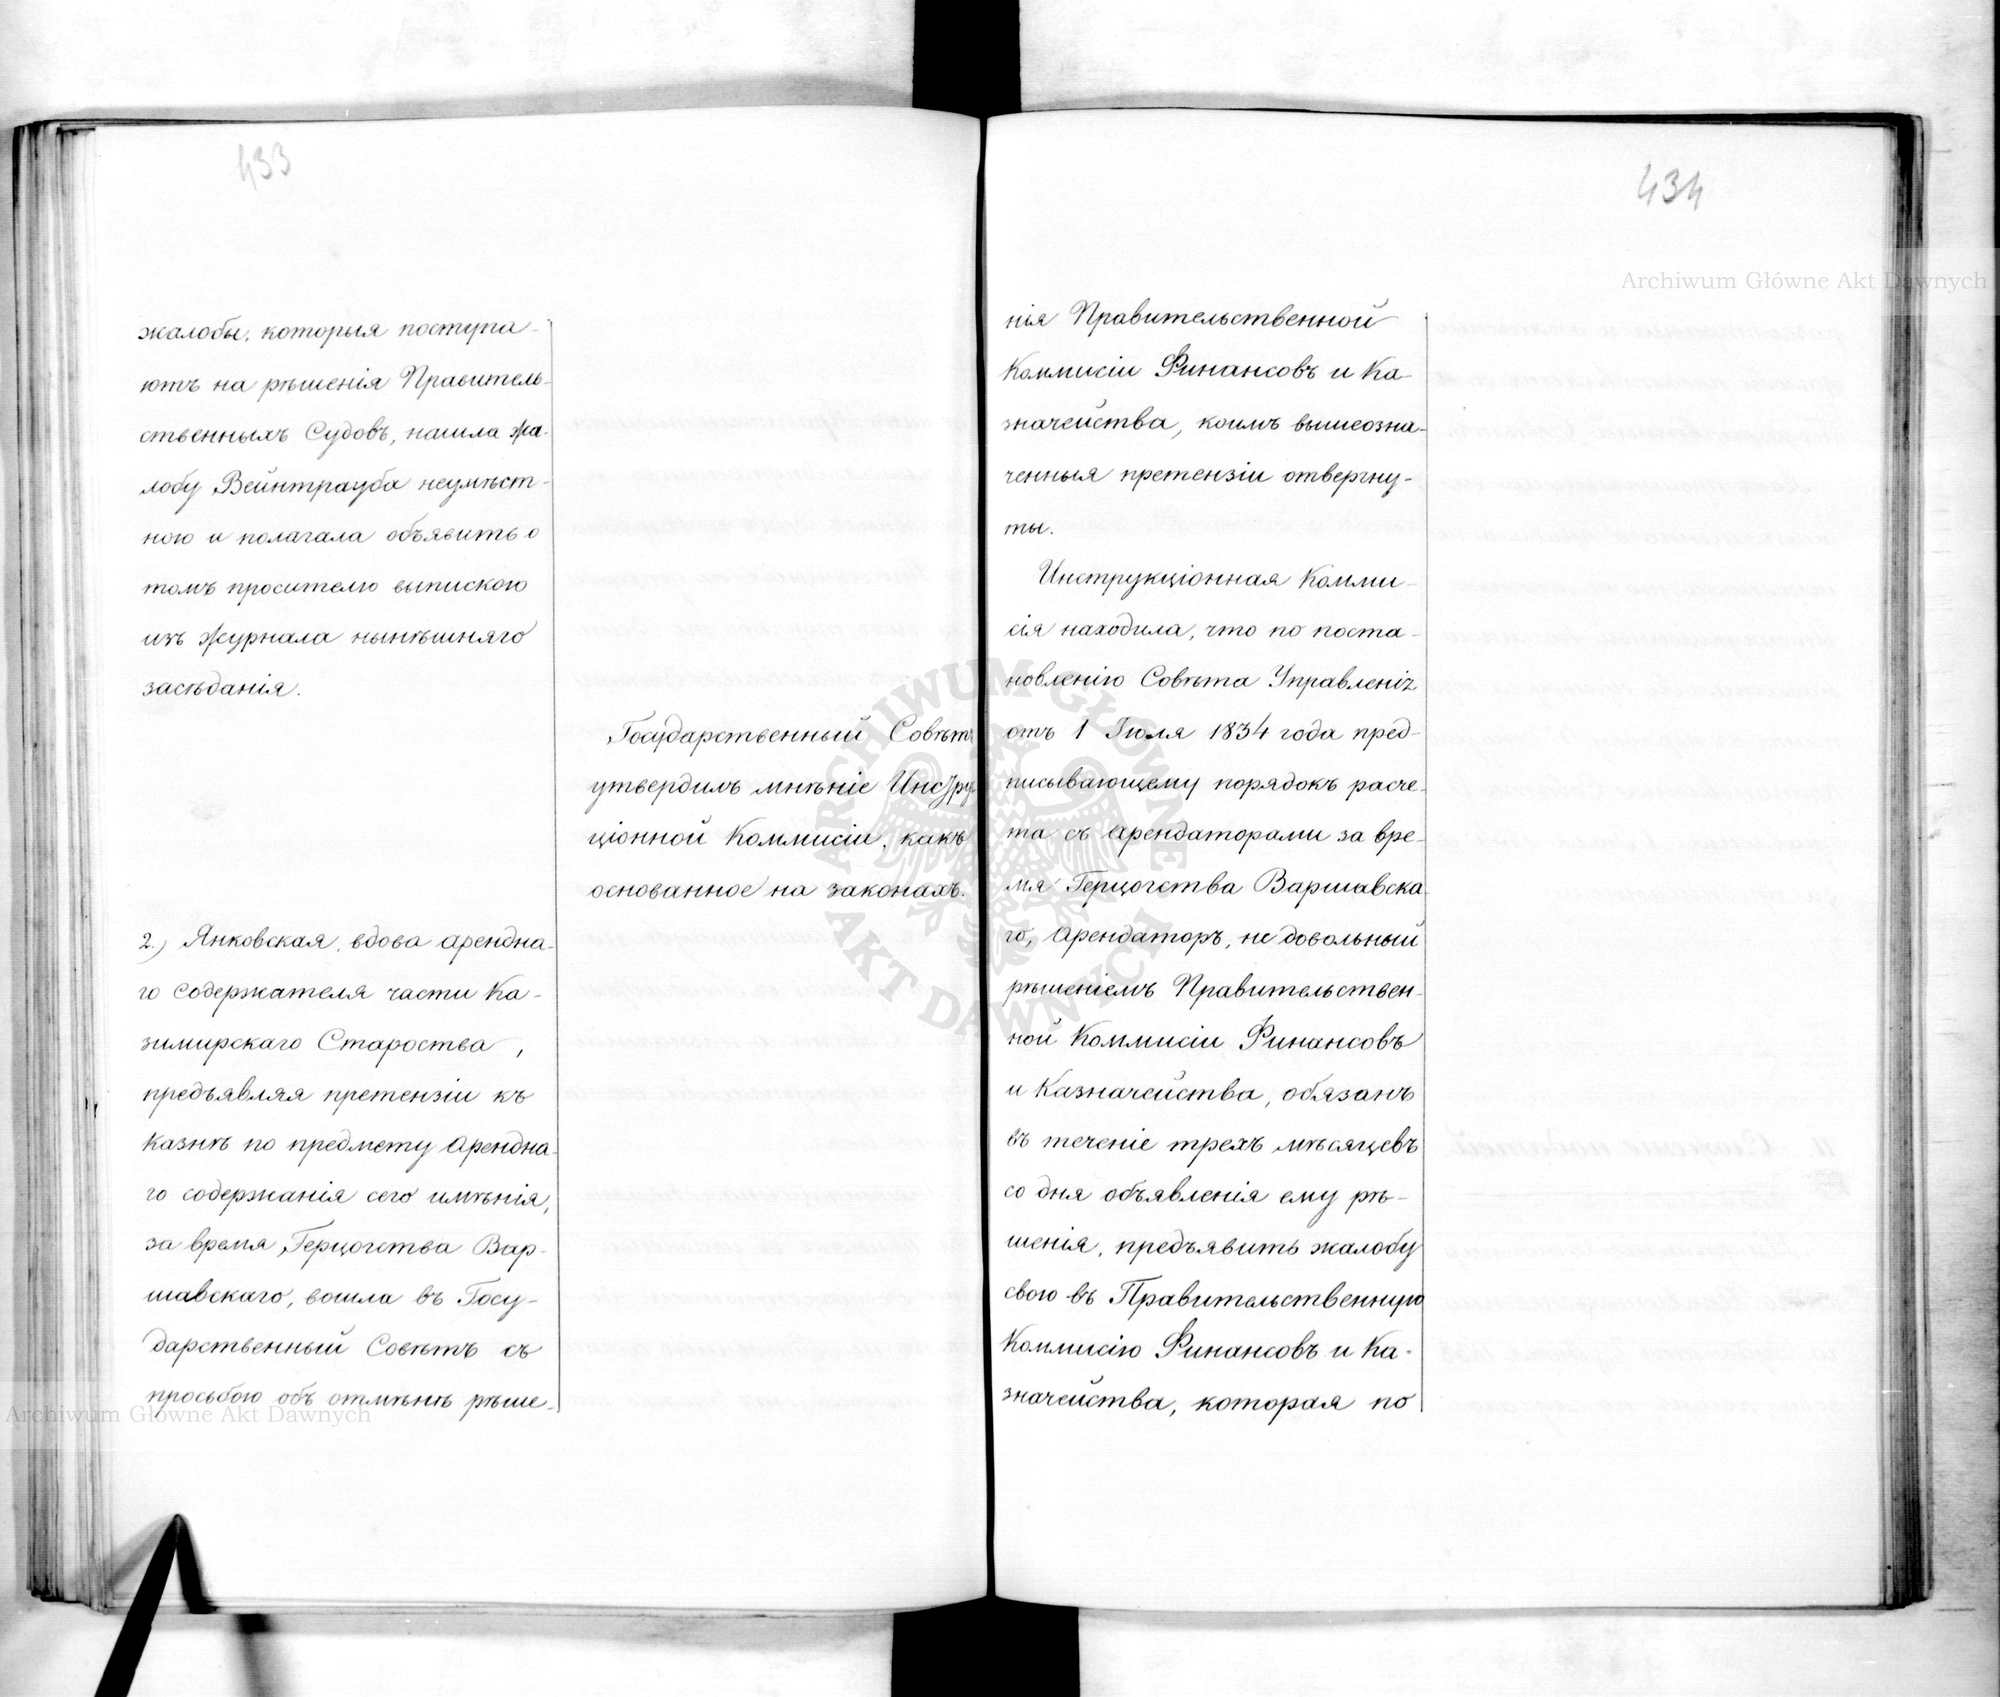 433
жалобы, которыя поступа-
ютъ на рѣшенія Правитель-
ственныхъ Судовъ, нашла жа-
лобу Вейнтрауба неумѣст-
ною и полагала объявить о
томъ просителю выпискою
изъ журнала нынѣшняго
засѣданія.
Государственный Совѣтъ
утвердилъ мнѣніе Инструк-
ціонной Коммисіи, какъ
основанное на законахъ.
2.) Янковская, вдова арендна-
го содержателя части Ка-
зимирскаго Староства,
предъявляя претензіи къ
казнѣ по предмету арендна-
го содержанія сего имѣнія,
за время Герцогства Вар-
шавскаго, вошла въ Госу-
дарственный Совѣтъ съ
просьбою объ отмѣнѣ рѣше-
434
нія Правительственной
Коммисіи Финансовъ и Ка-
значейства, коимъ вышеозна-
ченныя претензіи отвергну-
ты.
Инструкціонная Комми-
сія находила, что по поста-
новленію Совѣта Управленія
отъ 1 Іюля 1834 года пред-
писывающему порядокъ расче-
та съ арендаторами за вре-
мя Герцогства Варшавска-
го, арендаторъ, не довольный
рѣшеніемъ Правительствен-
ной Коммисіи Финансовъ
и Казначейства, обязанъ
въ теченіе трехъ мѣсяцевъ
со дня объявленія ему рѣ-
шенія, предъявить жалобу
свою въ Правительственную
Коммисію Финансовъ и Ка-
значейства, которая по
Archiwum Główne Akt Dawnych
Archiwum Główne Akt Dawnych
ARCHIWUM GŁÓWNE AKT DAWNYCH